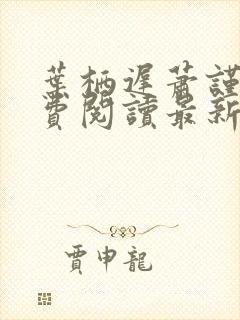 葉栖遲蕭謹
費閱讀最新
賈申龍